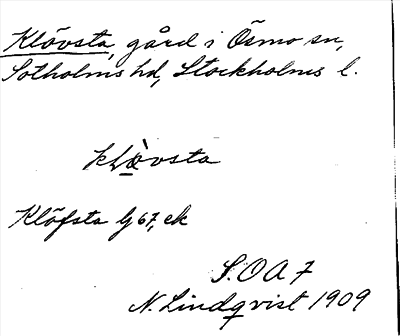 Klövsta, gård i Ösmo sn,
Sotholms hd, Stockholms l.
klòvsta
Klöfsta Gj 67, ek
S.O A 7
N. Lindqvist 1909